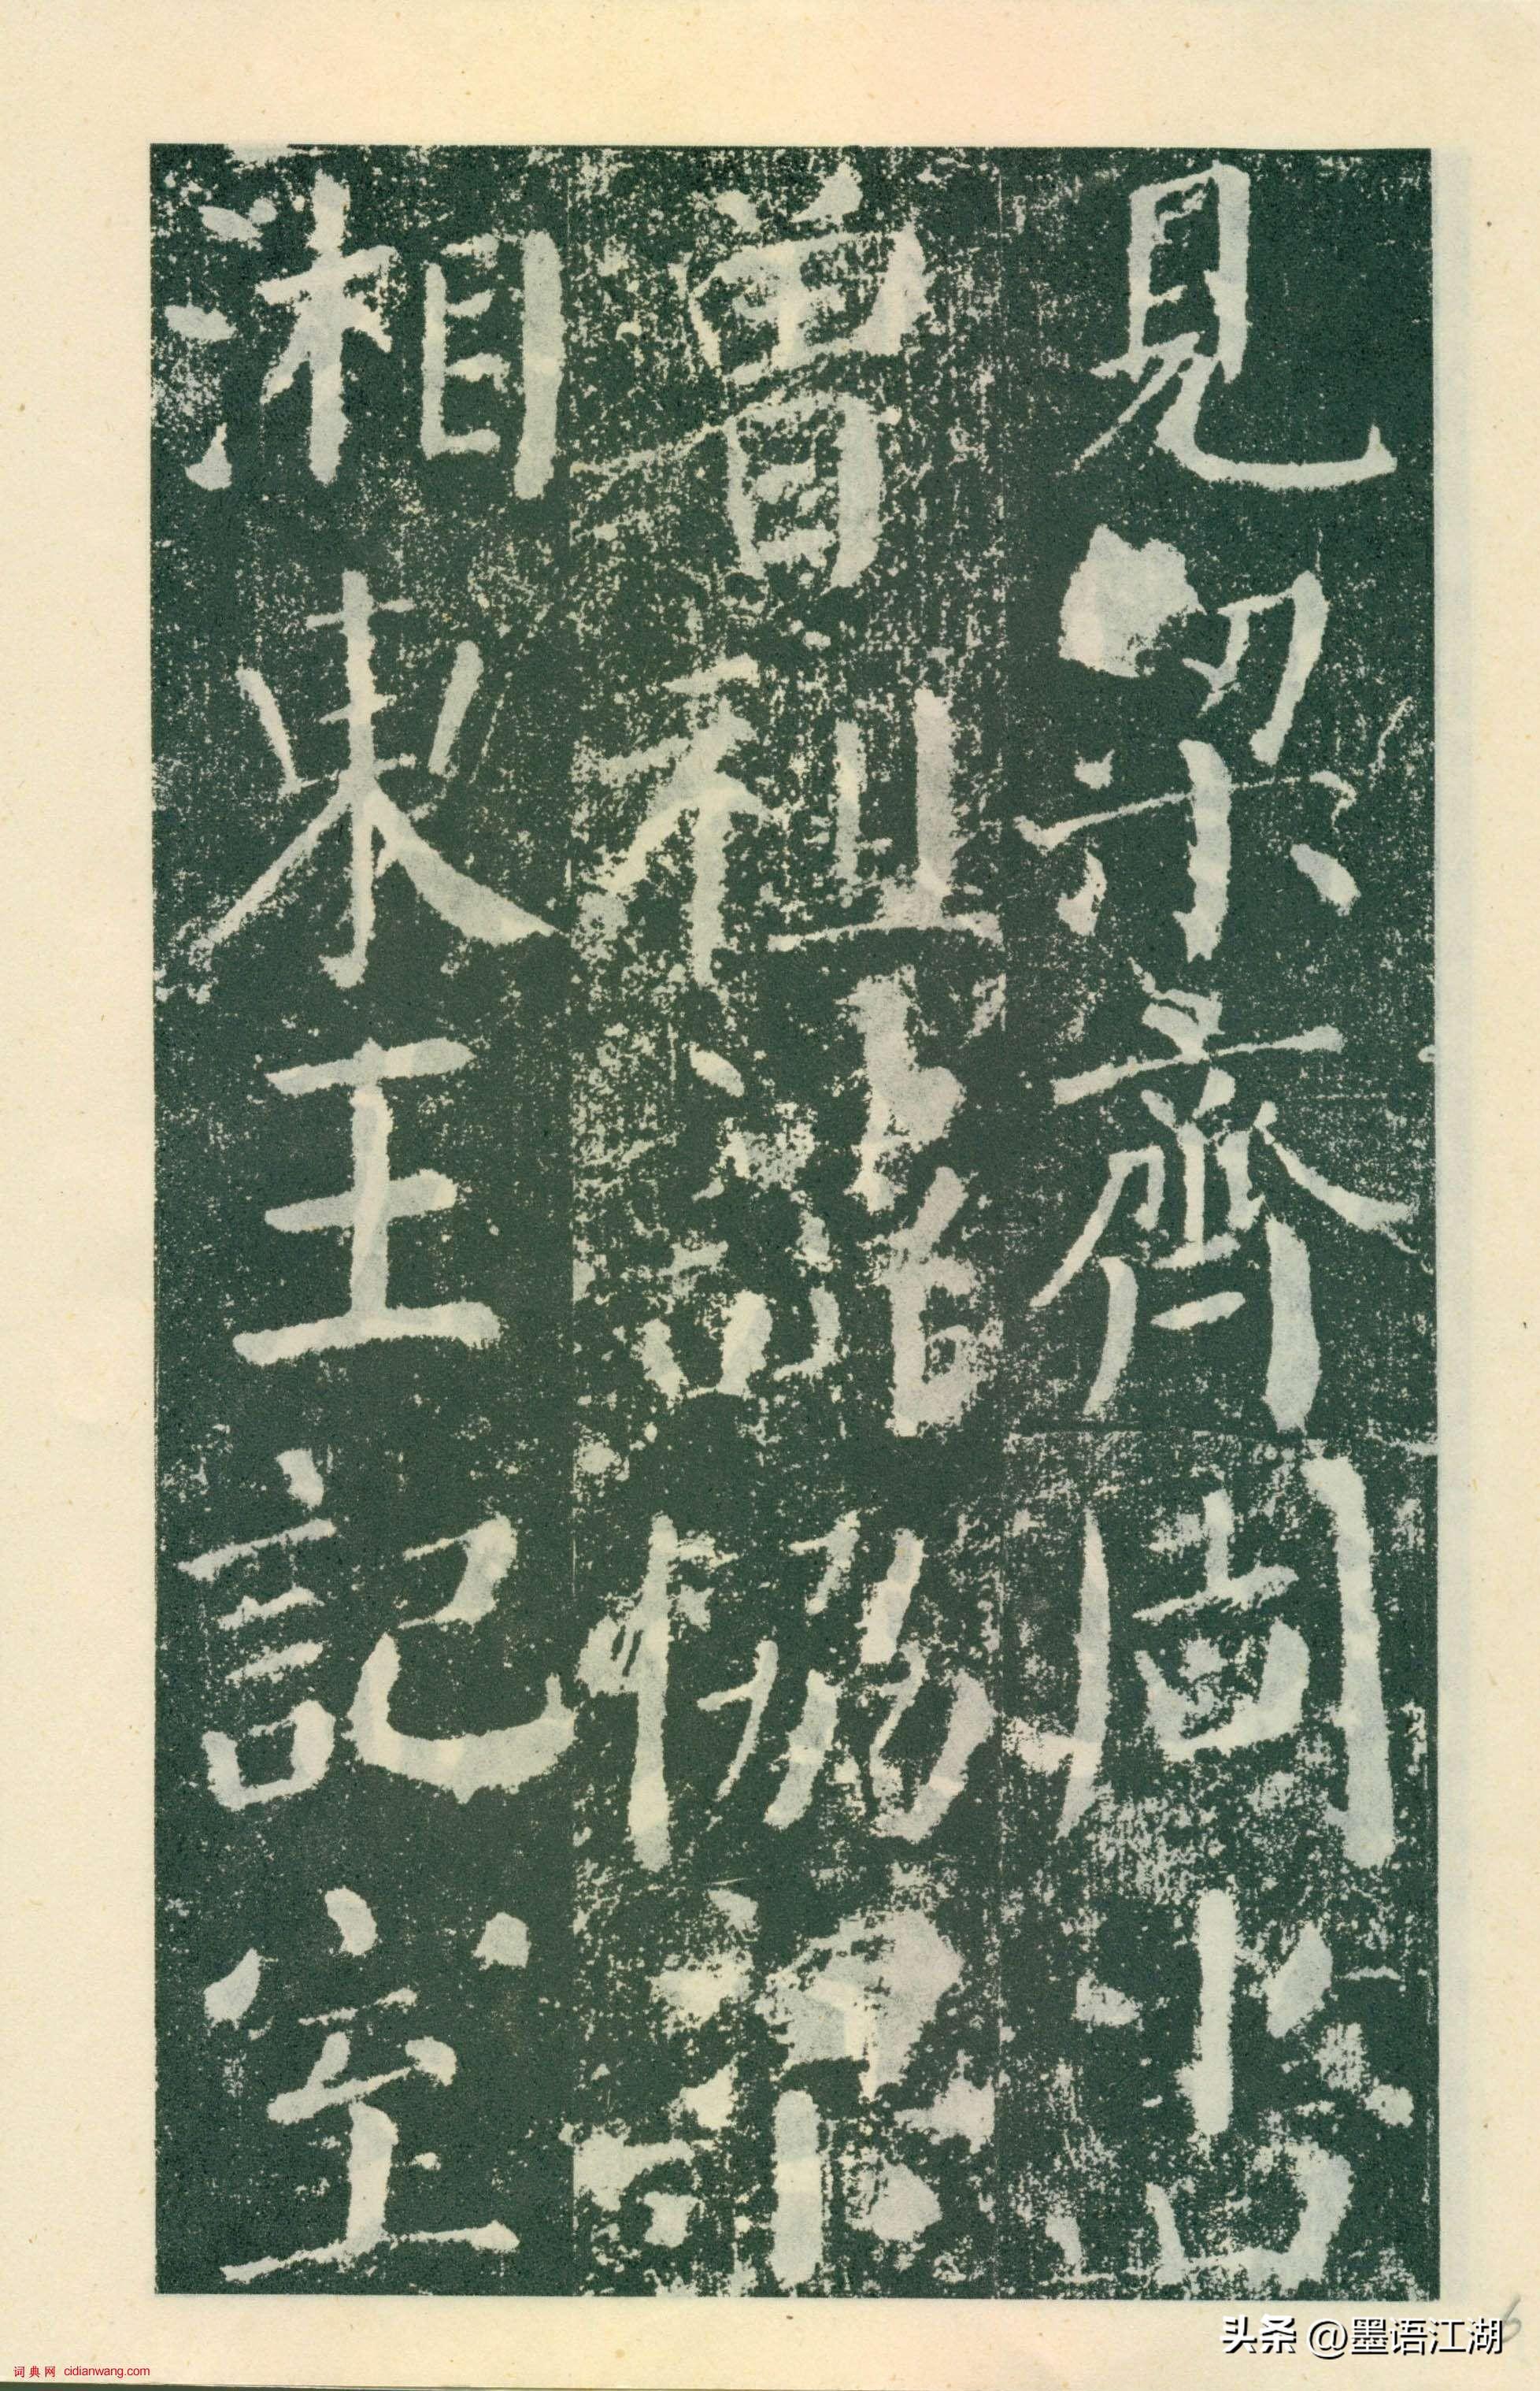 見梁齊周書
曾祖諱協梁
湘東王記室
头条 @墨语江湖
6
词典网 cidianwang.com